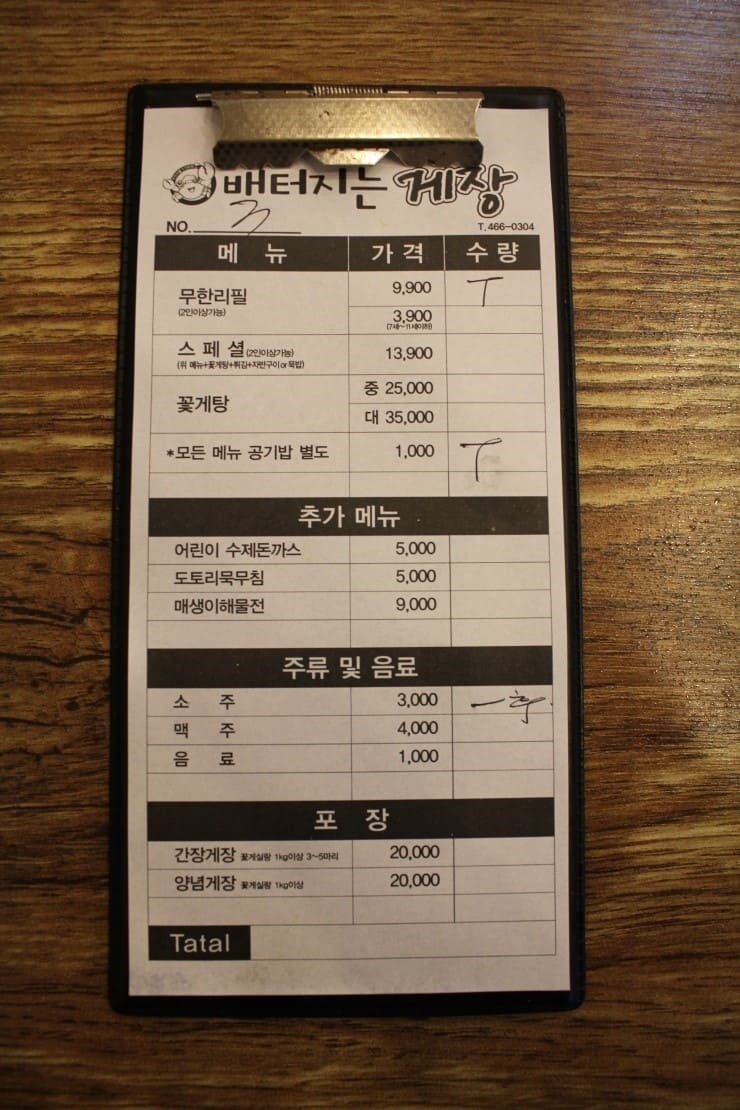 배터지는 게장
NO. 3
T. 466-0304
메 뉴 가 격 수 량
무한리필 9,900 T
(2인이상가능) 3,900
(7세~11세이하)
스 페 셜 (2인이상가능) 13,900
(위 메뉴+꽃게탕+튀김+자반구이or묵밥)
꽃게탕 중 25,000
대 35,000
*모든 메뉴 공기밥 별도 1,000 T
추가 메뉴
어린이 수제돈까스 5,000
도토리묵무침 5,000
매생이해물전 9,000
주류 및 음료
소 주 3,000 一
맥 주 4,000
음 료 1,000
포 장
간장게장 꽃게실량 1kg이상 3~5마리 20,000
양념게장 꽃게실량 1kg이상 20,000
Tatal